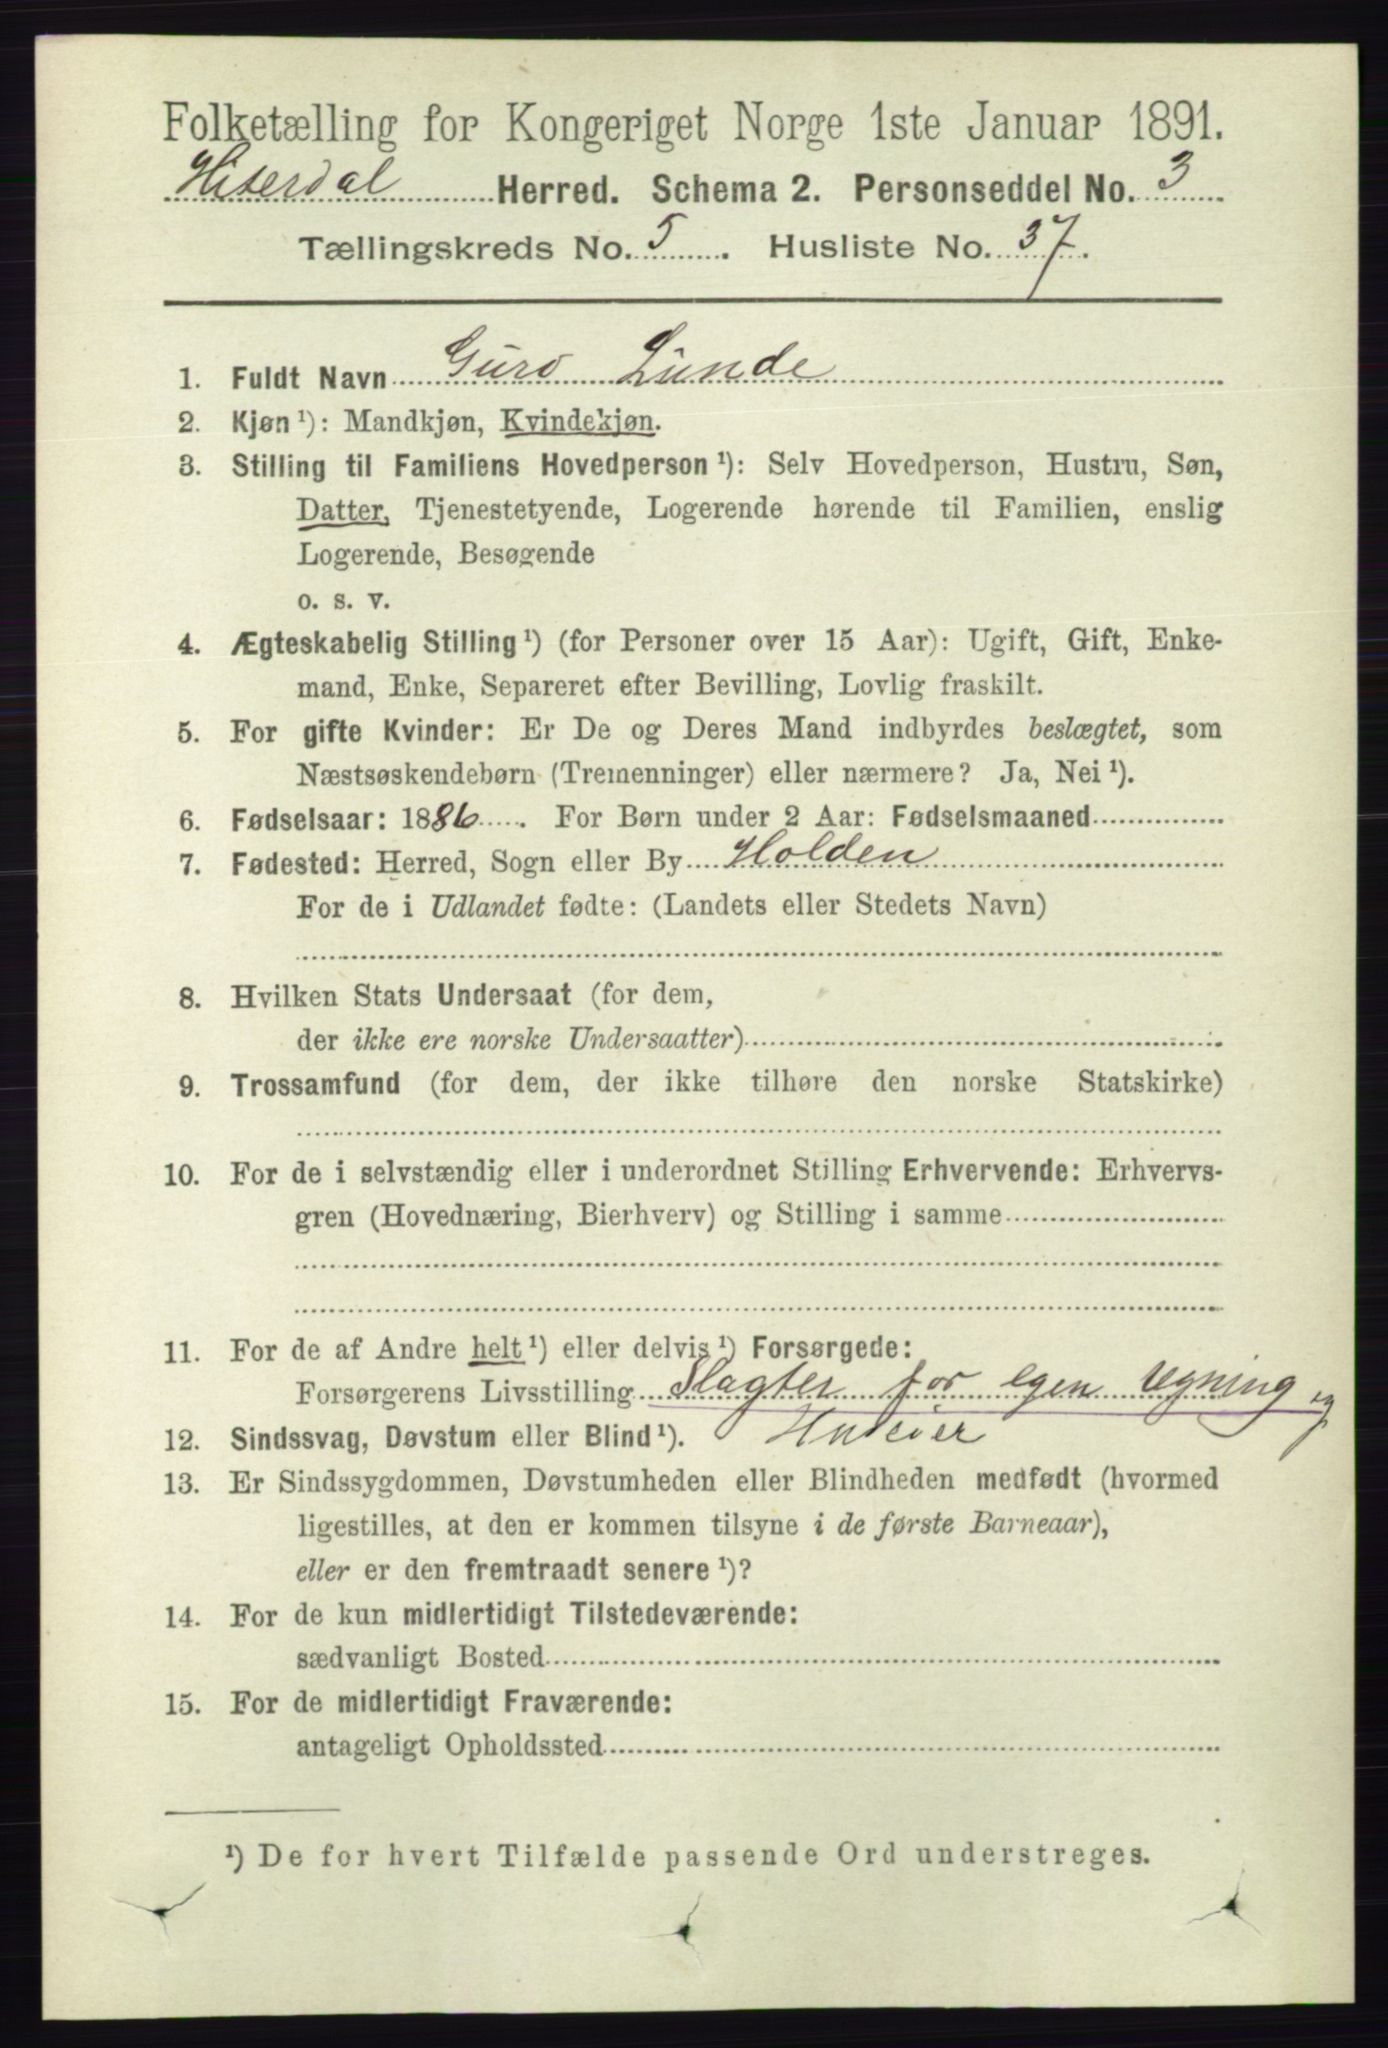 Folketælling for Kongeriget Norge 1ste Januar 1891.
Hiterdal Herred. Schema 2. Personseddel No. 3
Tællingskreds No. 5. Husliste No. 37.
1. Fuldt Navn Guro Lunde
2. Kjøn ¹): Mandkjøn, Kvindekjøn.
3. Stilling til Familiens Hovedperson ¹): Selv Hovedperson, Hustru, Søn,
Datter, Tjenestetyende, Logerende hørende til Familien, enslig
Logerende, Besøgende
o. s. v.
4. Ægteskabelig Stilling ¹) (for Personer over 15 Aar): Ugift, Gift, Enke-
mand, Enke, Separeret efter Bevilling, Lovlig fraskilt.
5. For gifte Kvinder: Er De og Deres Mand indbyrdes beslægtet, som
Næstsøskendebørn (Tremenninger) eller nærmere? Ja, Nei ¹).
6. Fødselsaar: 1886. For Børn under 2 Aar: Fødselsmaaned
7. Fødested: Herred, Sogn eller By Holden
For de i Udlandet fødte: (Landets eller Stedets Navn)
8. Hvilken Stats Undersaat (for dem,
der ikke ere norske Undersaatter)
9. Trossamfund (for dem, der ikke tilhøre den norske Statskirke)
10. For de i selvstændig eller i underordnet Stilling Erhvervende: Erhvervs-
gren (Hovednæring, Bierhverv) og Stilling i samme
11. For de af Andre helt ¹) eller delvis ¹) Forsørgede:
Forsørgerens Livsstilling Slagter for egen regning og
12. Sindssvag, Døvstum eller Blind ¹). Huseier
13. Er Sindssygdommen, Døvstumheden eller Blindheden medfødt (hvormed
ligestilles, at den er kommen tilsyne i de første Barneaar),
eller er den fremtraadt senere ¹)?
14. For de kun midlertidigt Tilstedeværende:
sædvanligt Bosted
15. For de midlertidigt Fraværende:
antageligt Opholdssted
¹) De for hvert Tilfælde passende Ord understreges.